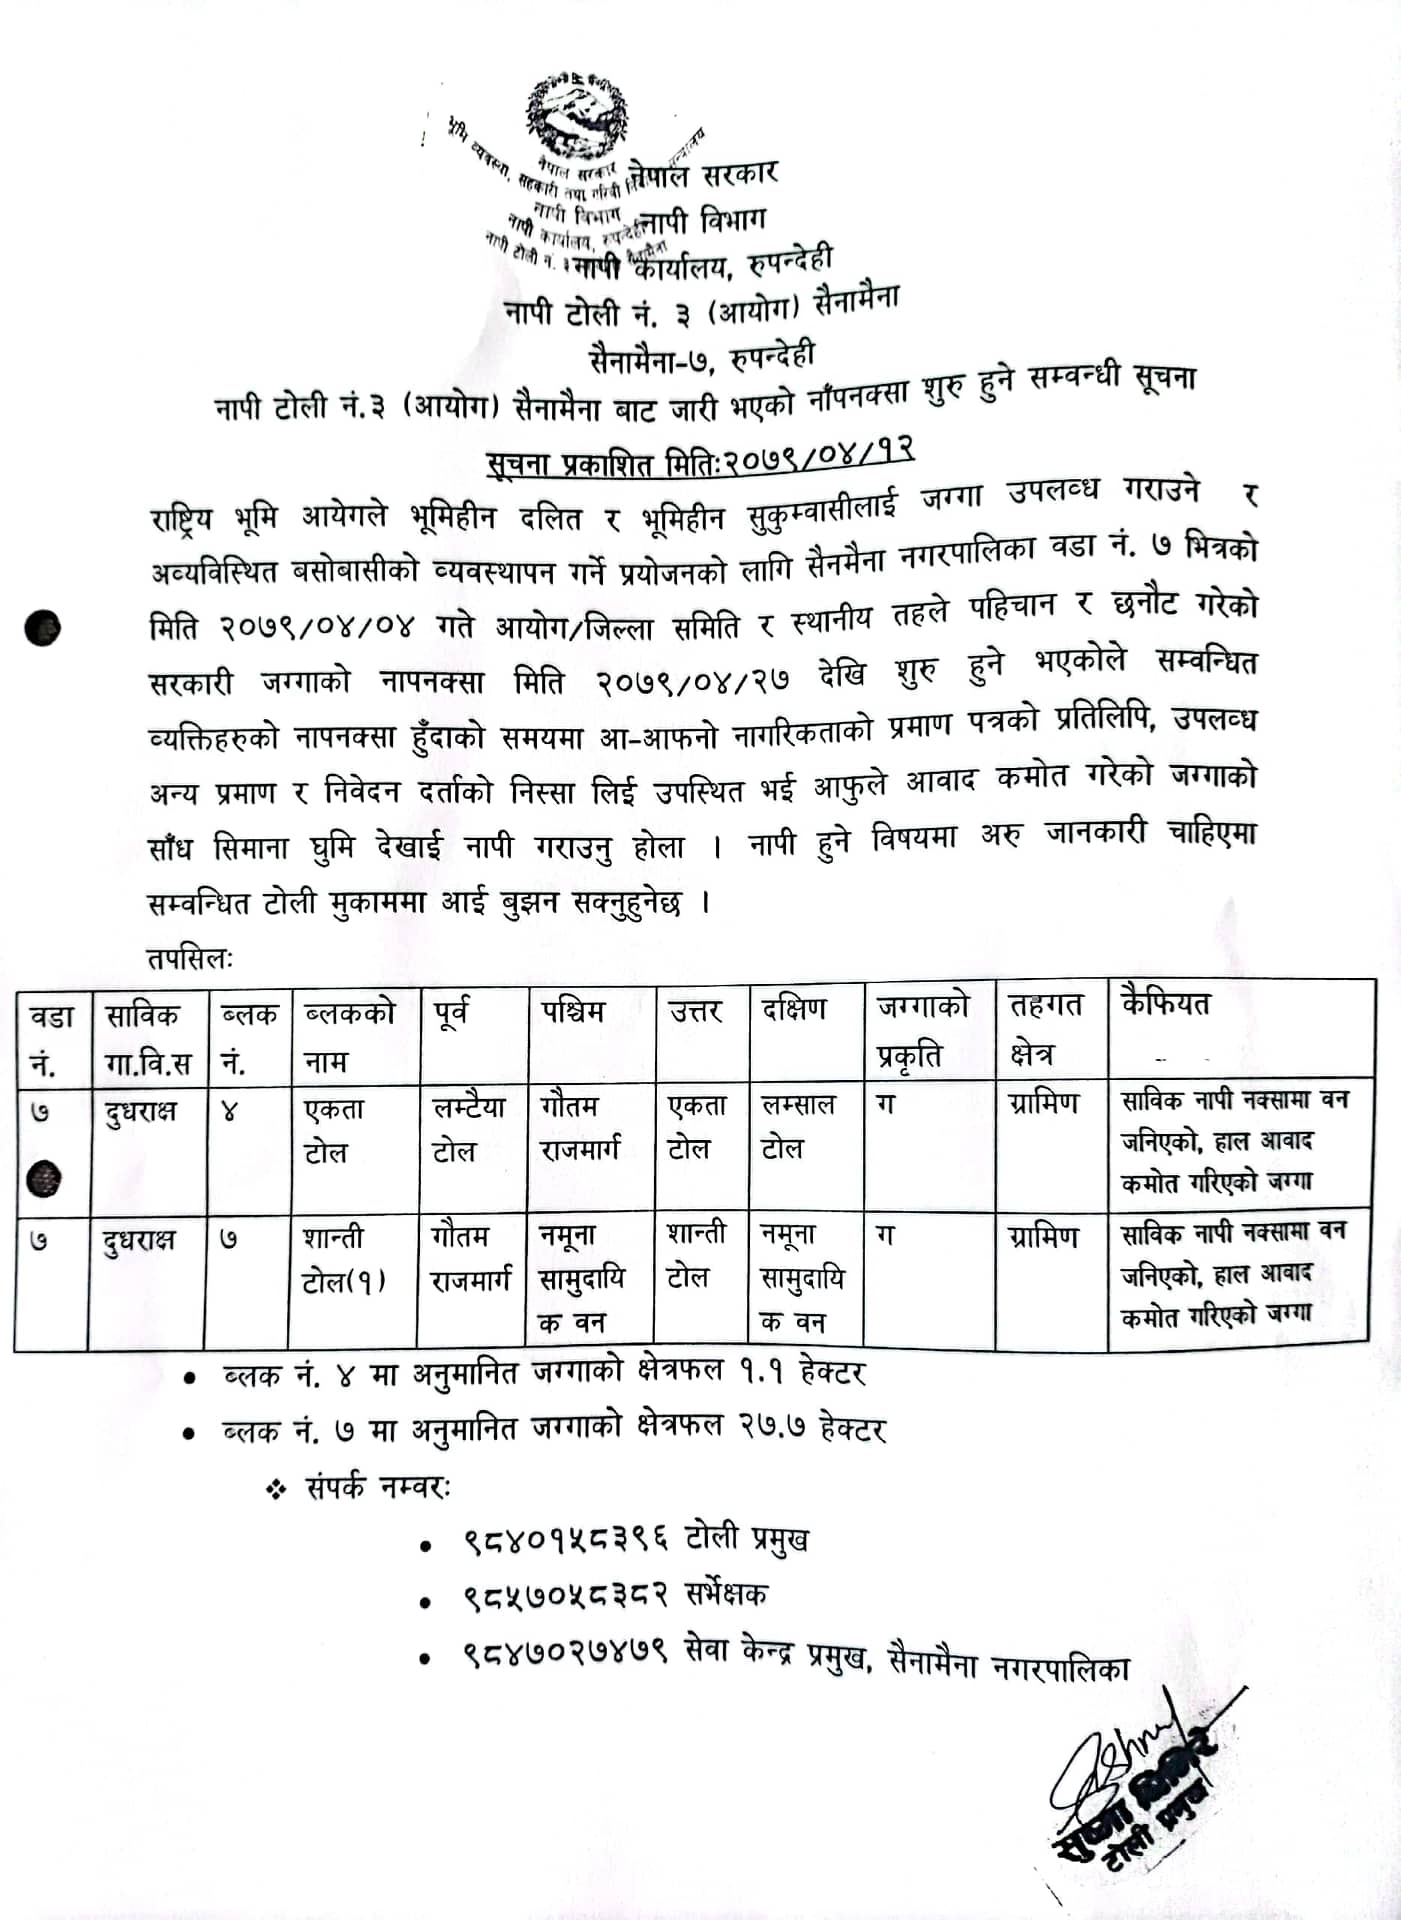 भूमि व्यवस्था, सहकारी तथा गरिबी
नेपाल सरकार
नापी विभाग
नापी कार्यालय, रुपन्देही
नापी टोली नं. ३ सैनामैना
नेपाल सरकार
नापी विभाग
नापी कार्यालय, रुपन्देही
नापी टोली नं. ३ (आयोग) सैनामैना
सैनामैना-७, रुपन्देही
नापी टोली नं.३ (आयोग) सैनामैना बाट जारी भएको नाँपनक्सा शुरु हुने सम्वन्धी सूचना
सूचना प्रकाशित मितिः२०७९/०४/१२
राष्ट्रिय भूमि आयेगले भूमिहीन दलित र भूमिहीन सुकुम्वासीलाई जग्गा उपलव्ध गराउने र
अव्यविस्थित बसोबासीको व्यवस्थापन गर्ने प्रयोजनको लागि सैनमैना नगरपालिका वडा नं. ७ भित्रको
मिति २०७९/०४/०४ गते आयोग/जिल्ला समिति र स्थानीय तहले पहिचान र छनौट गरेको
सरकारी जग्गाको नापनक्सा मिति २०७९/०४/२७ देखि शुरु हुने भएकोले सम्वन्धित
व्यक्तिहरुको नापनक्सा हुँदाको समयमा आ-आफनो नागरिकताको प्रमाण पत्रको प्रतिलिपि, उपलव्ध
अन्य प्रमाण र निवेदन दर्ताको निस्सा लिई उपस्थित भई आफुले आवाद कमोत गरेको जग्गाको
साँध सिमाना घुमि देखाई नापी गराउनु होला । नापी हुने विषयमा अरु जानकारी चाहिएमा
सम्वन्धित टोली मुकाममा आई बुझन सक्नुहुनेछ ।
तपसिलः
वडा नं. साविक गा.वि.स ब्लक नं. ब्लकको नाम पूर्व पश्चिम उत्तर दक्षिण जग्गाको प्रकृति तहगत क्षेत्र कैफियत
७ दुधराक्ष ४ एकता टोल लम्टैया टोल गौतम राजमार्ग एकता टोल लम्साल टोल ग ग्रामिण साविक नापी नक्सामा वन जनिएको, हाल आवाद कमोत गरिएको जग्गा
७ दुधराक्ष ७ शान्ती टोल(१) गौतम राजमार्ग नमूना सामुदायिक वन शान्ती टोल नमूना सामुदायिक वन ग ग्रामिण साविक नापी नक्सामा वन जनिएको, हाल आवाद कमोत गरिएको जग्गा
• ब्लक नं. ४ मा अनुमानित जग्गाको क्षेत्रफल १.१ हेक्टर
• ब्लक नं. ७ मा अनुमानित जग्गाको क्षेत्रफल २७.७ हेक्टर
❖ संपर्क नम्वरः
• ९८४०१५८३९६ टोली प्रमुख
• ९८५७०५८३८२ सर्भेक्षक
• ९८४७०२७४७९ सेवा केन्द्र प्रमुख, सैनामैना नगरपालिका
सुष्मा घिमिरे
टोली प्रमुख